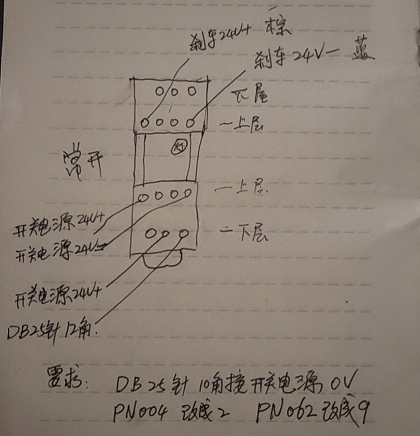 刹车24V+ 棕
刹车24V- 蓝
下层
上层
常开
上层
开关电源24V+
开关电源24V-
下层
开关电源24V+
DB25针12角
要求: DB25针10角接开关电源0V
PN004改成2 PN062改成9